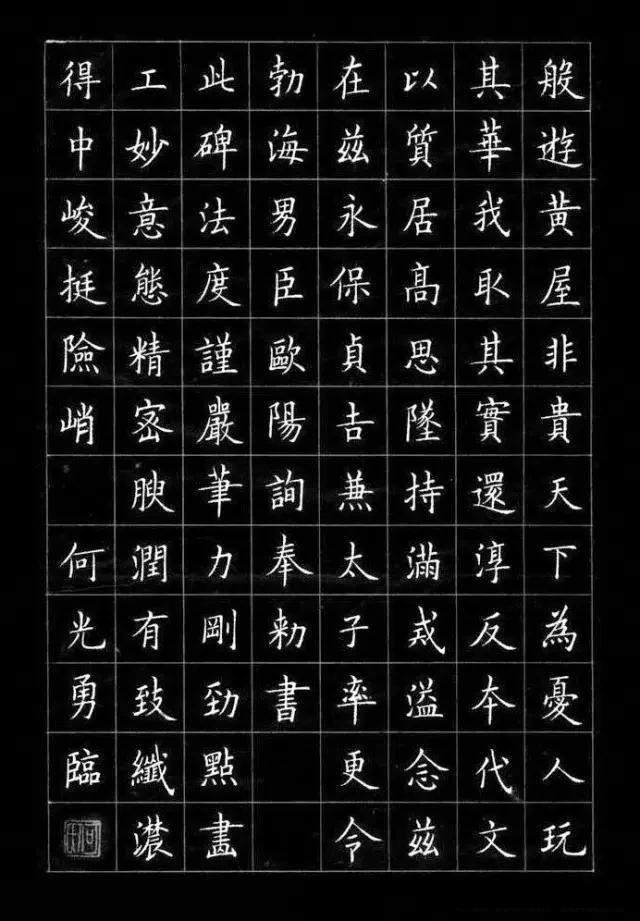 般遊黄屋非貴天下為憂人玩
其華我取其實還淳反本代文
以質居髙思墜持滿戒溢念兹
在兹永保貞吉兼太子率更令
勃海男臣歐陽詢奉勅書
此碑法度謹嚴筆力剛勁點畫
工妙意態精密腴潤有致纖濃
得中峻挺險峭 何光勇臨